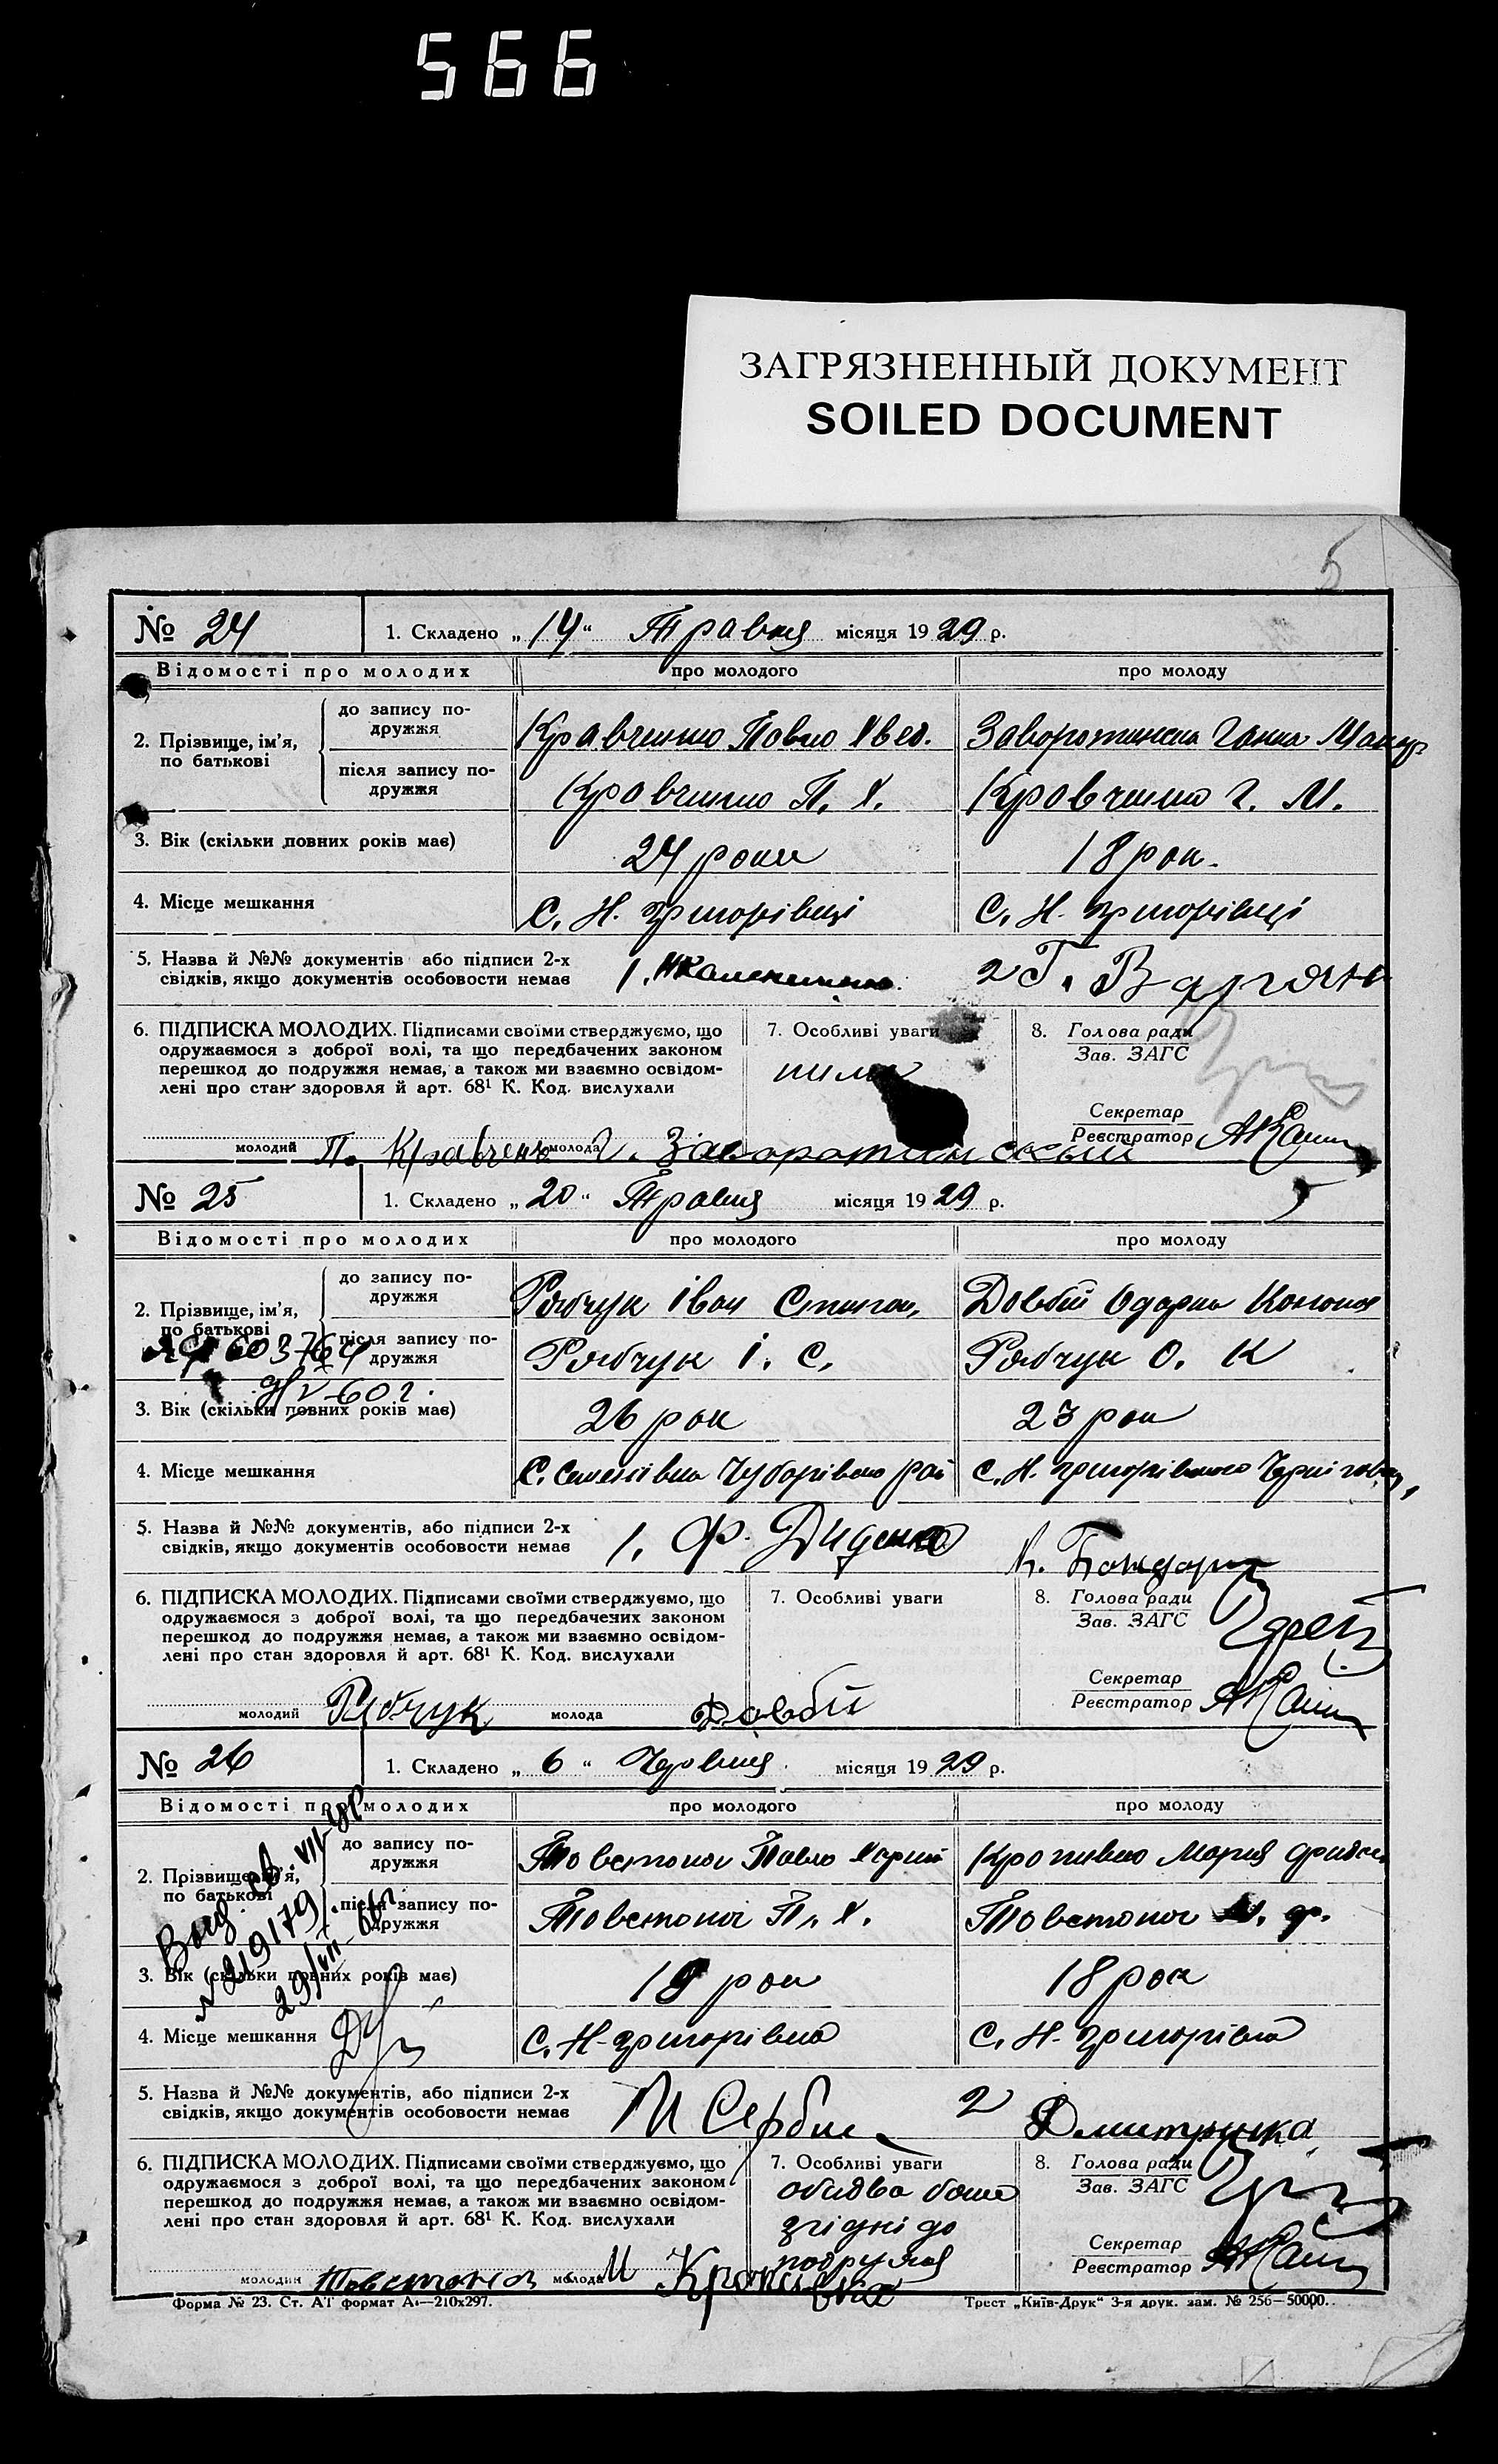 566
ЗАГРЯЗНЕННЫЙ ДОКУМЕНТ
SOILED DOCUMENT
5
№ 24 1. Складено „ 14 “ Травня місяця 1929 р.
Відомості про молодих про молодого про молоду
2. Прізвище, ім’я, по батькові
до запису подружжя Кравченко Павло Хвед. Заворотинська Ганна
після запису подружжя Кравченко П. Х. Кравченко Г. М.
3. Вік (скільки повних років має) 24 роки 18 рок.
4. Місце мешкання С. Н. Григорівці С. Н. Григорівці
5. Назва й №№ документів або підписи 2-х
свідків, якщо документів особовости немає 1. 2 Г.
6. ПІДПИСКА МОЛОДИХ. Підписами своїми стверджуємо, що
одружаємося з доброї волі, та що передбачених законом
перешкод до подружжя немає, а також ми взаємно освідом-
лені про стан здоровля й арт. 68¹ К. Код. вислухали
7. Особливі уваги
8. Голова ради
Зав. ЗАГС
Секретар
Реєстратор
молодий П. Кравченко молода Г.
№ 25 1. Складено „ 20 “ Травня місяця 1929 р.
Відомості про молодих про молодого про молоду
2. Прізвище, ім’я, по батькові
до запису подружжя Рябчук Іван Степан. Довбій Одарка Конона
після запису подружжя Рябчук І. С. Рябчук О. К
3. Вік (скільки повних років має) 26 рок 23 рок
4. Місце мешкання С. Семенівка Чубарівсько рай С. Н. Григорівсько
5. Назва й №№ документів, або підписи 2-х
свідків, якщо документів особовости немає 1. Ф. Диденко
6. ПІДПИСКА МОЛОДИХ. Підписами своїми стверджуємо, що
одружаємося з доброї волі, та що передбачених законом
перешкод до подружжя немає, а також ми взаємно освідом-
лені про стан здоровля й арт. 68¹ К. Код. вислухали
7. Особливі уваги
8. Голова ради
Зав. ЗАГС
Секретар
Реєстратор
молодий Рябчук молода Довбій
№ 26 1. Складено „ 6 “ Червня місяця 1929 р.
Відомості про молодих про молодого про молоду
2. Прізвище, ім’я, по батькові
до запису подружжя Товстоног Павло Кропивко Мария
після запису подружжя Товстоног П. Х. Товстоног М. Ф.
3. Вік (скільки повних років має) рок 18 рок
4. Місце мешкання С. Н-Григорівка С. Н-Григорівка
5. Назва й №№ документів, або підписи 2-х
свідків, якщо документів особовости немає 2 Дмитренка
6. ПІДПИСКА МОЛОДИХ. Підписами своїми стверджуємо, що
одружаємося з доброї волі, та що передбачених законом
перешкод до подружжя немає, а також ми взаємно освідом-
лені про стан здоровля й арт. 68¹ К. Код. вислухали
7. Особливі уваги
обидва
згідні до
подружжя
8. Голова ради
Зав. ЗАГС
Секретар
Реєстратор
молодий Товстоног молода М
Форма № 23. Ст. АТ формат А₄—210х297. Трест „Київ-Друк“ 3-я друк. зам. № 256—50000.